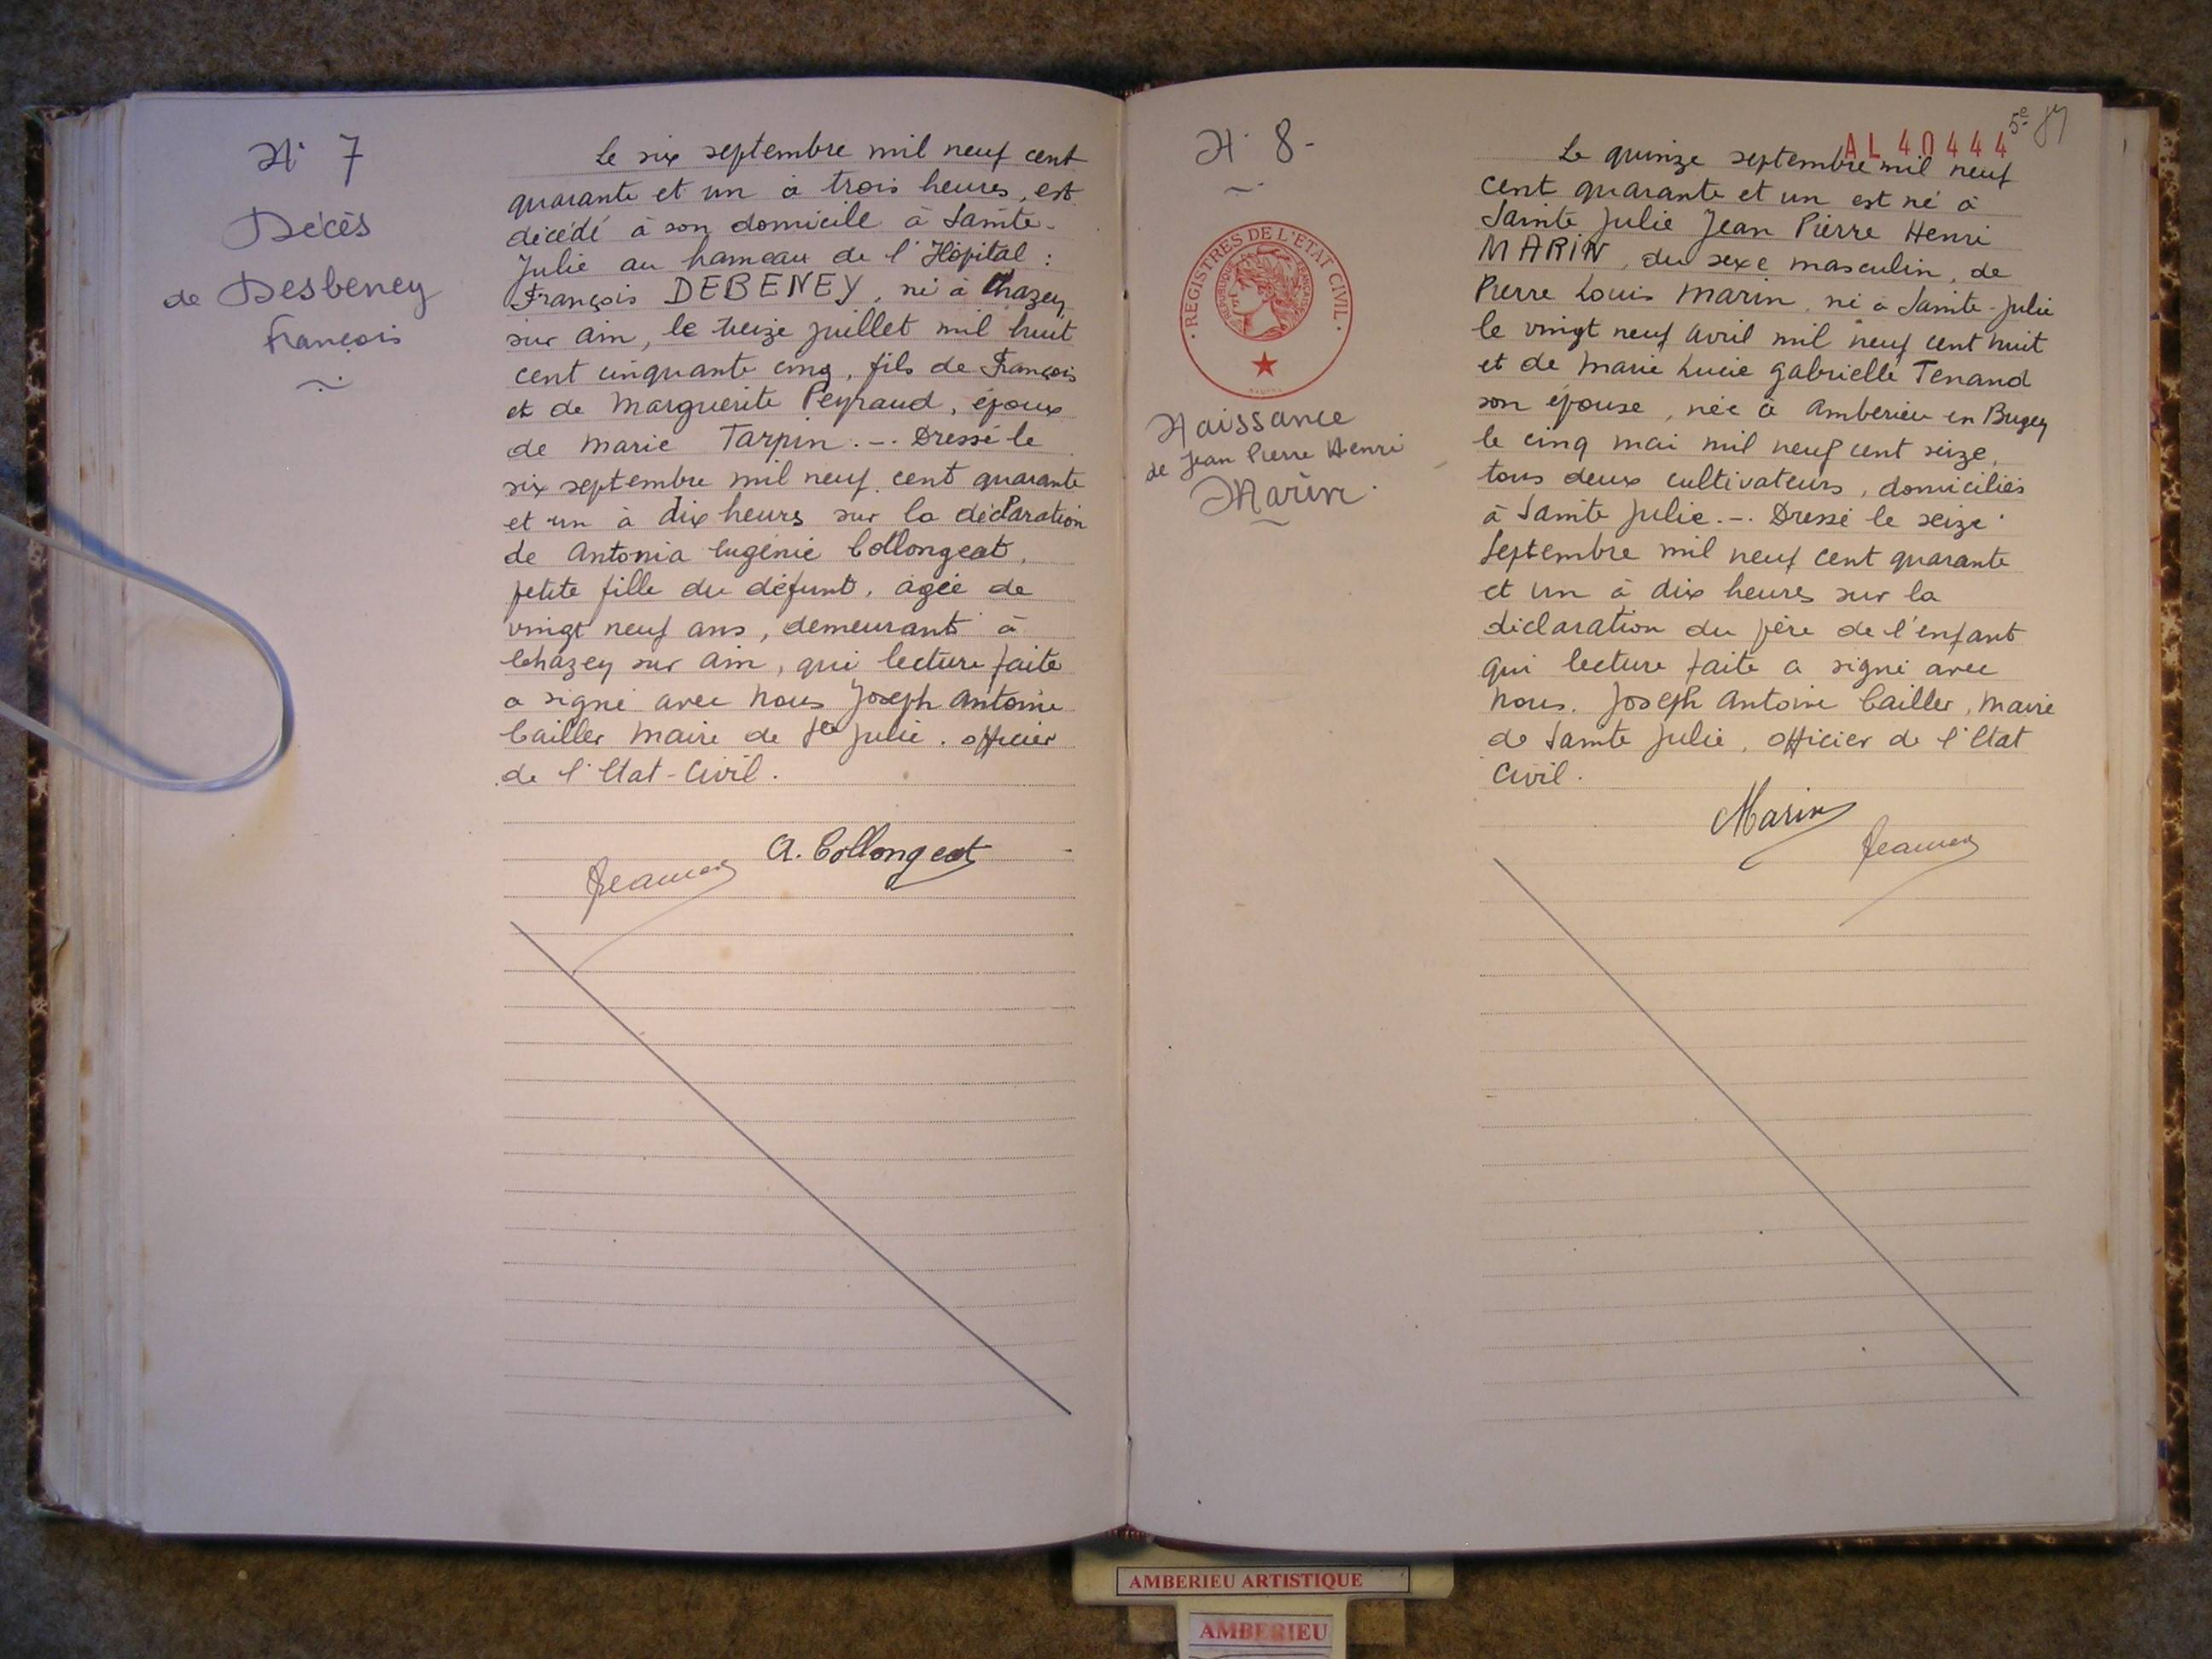 N° 7
Décès
de Desbeney
François
Le six septembre mil neuf cent
quarante et un à trois heures, est
décédé à son domicile à Sainte-
Julie au hameau de l'Hôpital :
François DEBENEY, né à Chazey
sur Ain, le treize juillet mil huit
cent cinquante cinq, fils de François
et de Marguerite Peyraud, époux
de Marie Tarpin. -. Dressé le
six septembre mil neuf cent quarante
et un à dix heures sur la déclaration
de Antonia Eugénie Collongeat,
petite fille du défunt, agée de
vingt neuf ans, demeurant à
Chazey sur Ain, qui lecture faite
a signé avec Nous Joseph Antoine
Cailler Maire de Ste Julie. Officier
de l'Etat-Civil.
A. Collongeat
N° 8-
REGISTRES DE L'ETAT CIVIL
REPUBLIQUE FRANÇAISE
Naissance
de Jean Pierre Henri
Marin
5e
AL 40444
Le quinze septembre mil neuf
cent quarante et un est né à
Sainte Julie Jean Pierre Henri
MARIN, du sexe masculin, de
Pierre Louis Marin, né à Sainte-Julie
le vingt neuf Avril mil neuf cent huit
et de Marie Lucie Gabrielle Tenand
son épouse, née à Ambérieu en Bugey
le cinq mai mil neuf cent seize,
tous deux cultivateurs, domiciliés
à Sainte Julie. -. Dressé le seize
Septembre mil neuf cent quarante
et un à dix heures sur la
déclaration du père de l'enfant
qui lecture faite a signé avec
Nous. Joseph Antoine Cailler, Maire
de Sainte Julie, Officier de l'Etat
Civil.
Marin
AMBERIEU ARTISTIQUE
AMBERIEU